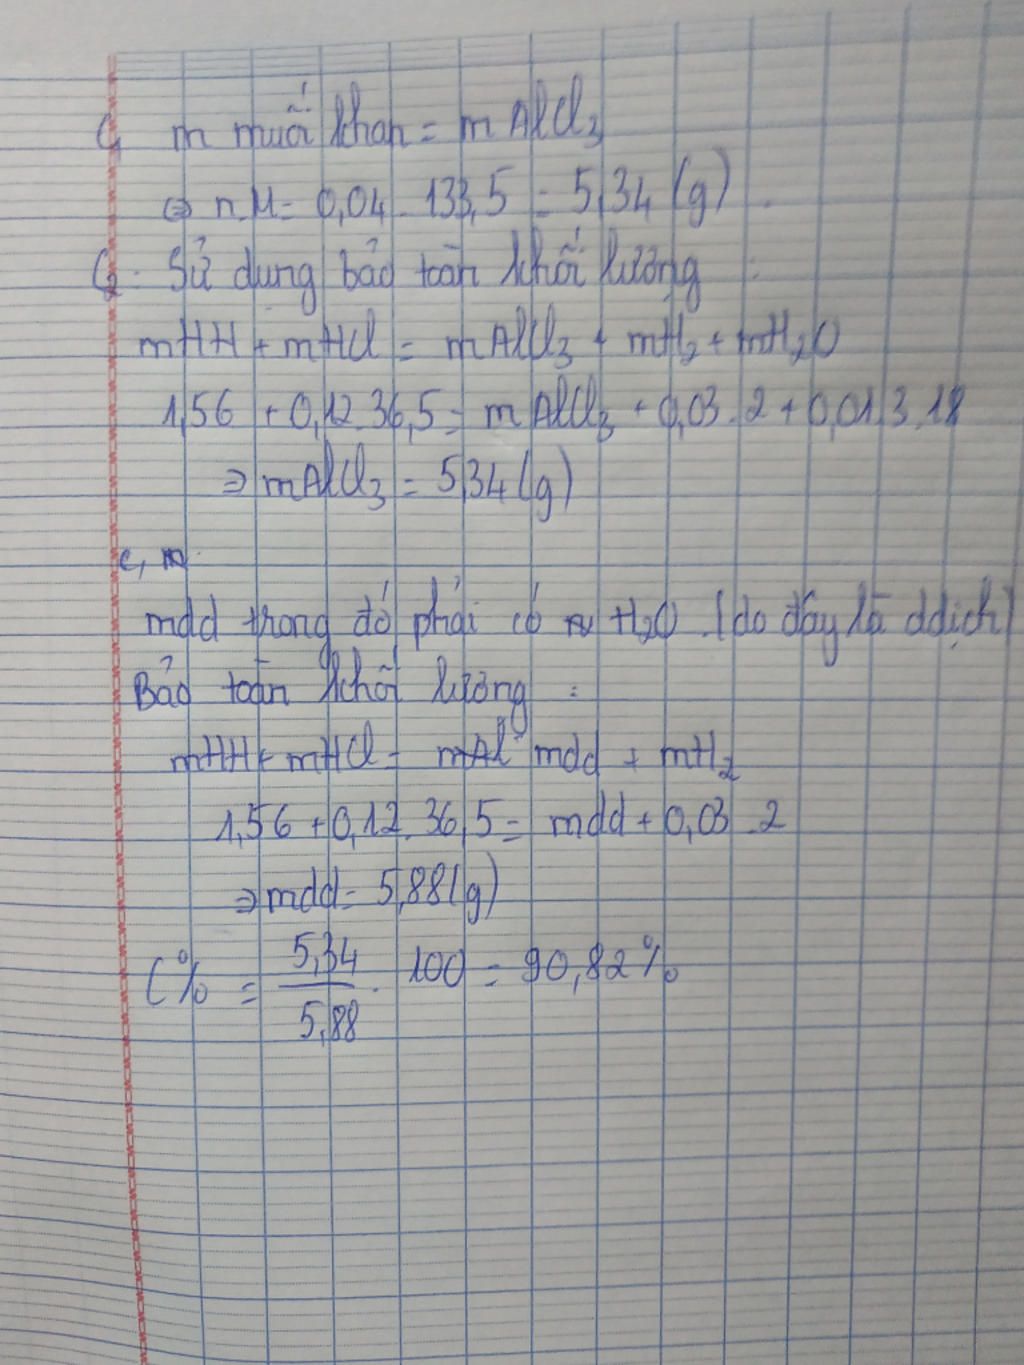 C₁ m muối khan = mAlCl₃
⇒ n.M = 0,04 . 133,5 = 5,34 (g).
C₂. Sử dụng bảo toàn khối lượng :
mHH + mHCl = mAlCl₃ + mH₂ + mH₂O
1,56 + 0,12.36,5 = mAlCl₃ + 0,03.2 + 0,01.3.18
⇒ mAlCl₃ = 5,34 (g)
c, m
mdd trong đó phải có H₂O. (do đây là ddịch)
Bảo toàn khối lượng :
mHH + mHCl = mAl mdd + mH₂
1,56 + 0,12.36,5 = mdd + 0,03.2
⇒ mdd = 5,88 (g)
C% = 5,34/5,88 . 100 = 90,82%